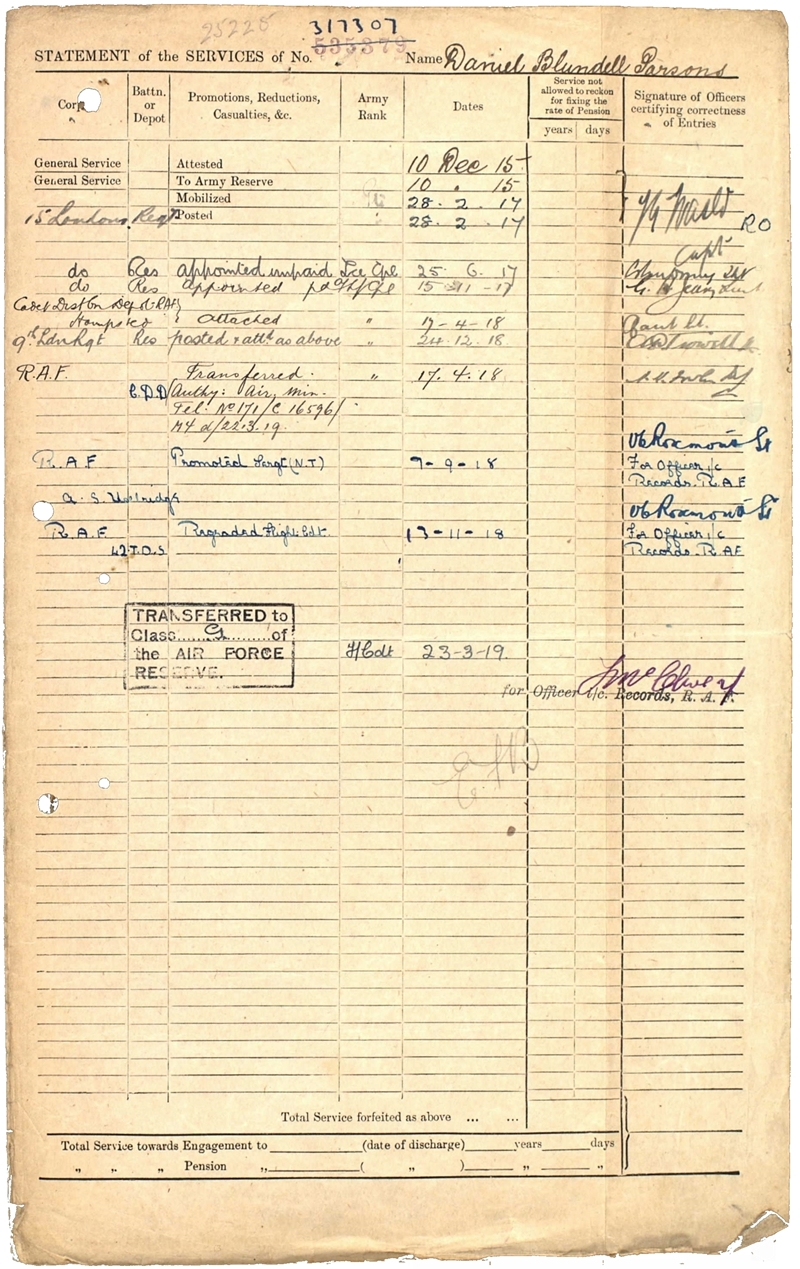 25228
317307
535379
STATEMENT of the SERVICES of No. Name Daniel Blundell Parsons
Corps
Battn. or Depot
Promotions, Reductions, Casualties, &c.
Army Rank
Dates
Service not allowed to reckon for fixing the rate of Pension
years days
Signature of Officers certifying correctness of Entries
General Service Attested 10 Dec 15
General Service To Army Reserve 10 " 15
Mobilized 28. 2. 17
15 Londons Regt Posted 28. 2. 17
R O
Capt
do Res appointed unpaid Lce Cpl 25. 6. 17
do Res appointed pd 15 11 - 17
Cadet Distbn Depot RAF
" Attached " 17-4-18
9th Ldn Rgt Res posted & attd as above " 24.12.18
R.A.F. Transferred. " 17.4.18
C.D.D Authy: Air Min.
Tel: No 171/C 16596/
M4 d/22.3.19.
R.A.F Promoted Sergt (N.T) 9-9-18 For Officer i/c
Records. R.A.F
R.A.F Regraded Flight Cdt. 13-11-18 For Officer i/c
42 T.D.S Records. R.A.F
TRANSFERRED to
Class....G....of
the AIR FORCE
RESERVE.
F/Cdt 23-3-19.
for Officer i/c. Records, R. A. F.
Total Service forfeited as above ... ...
Total Service towards Engagement to (date of discharge) years days
" " " Pension " ( " ) " "